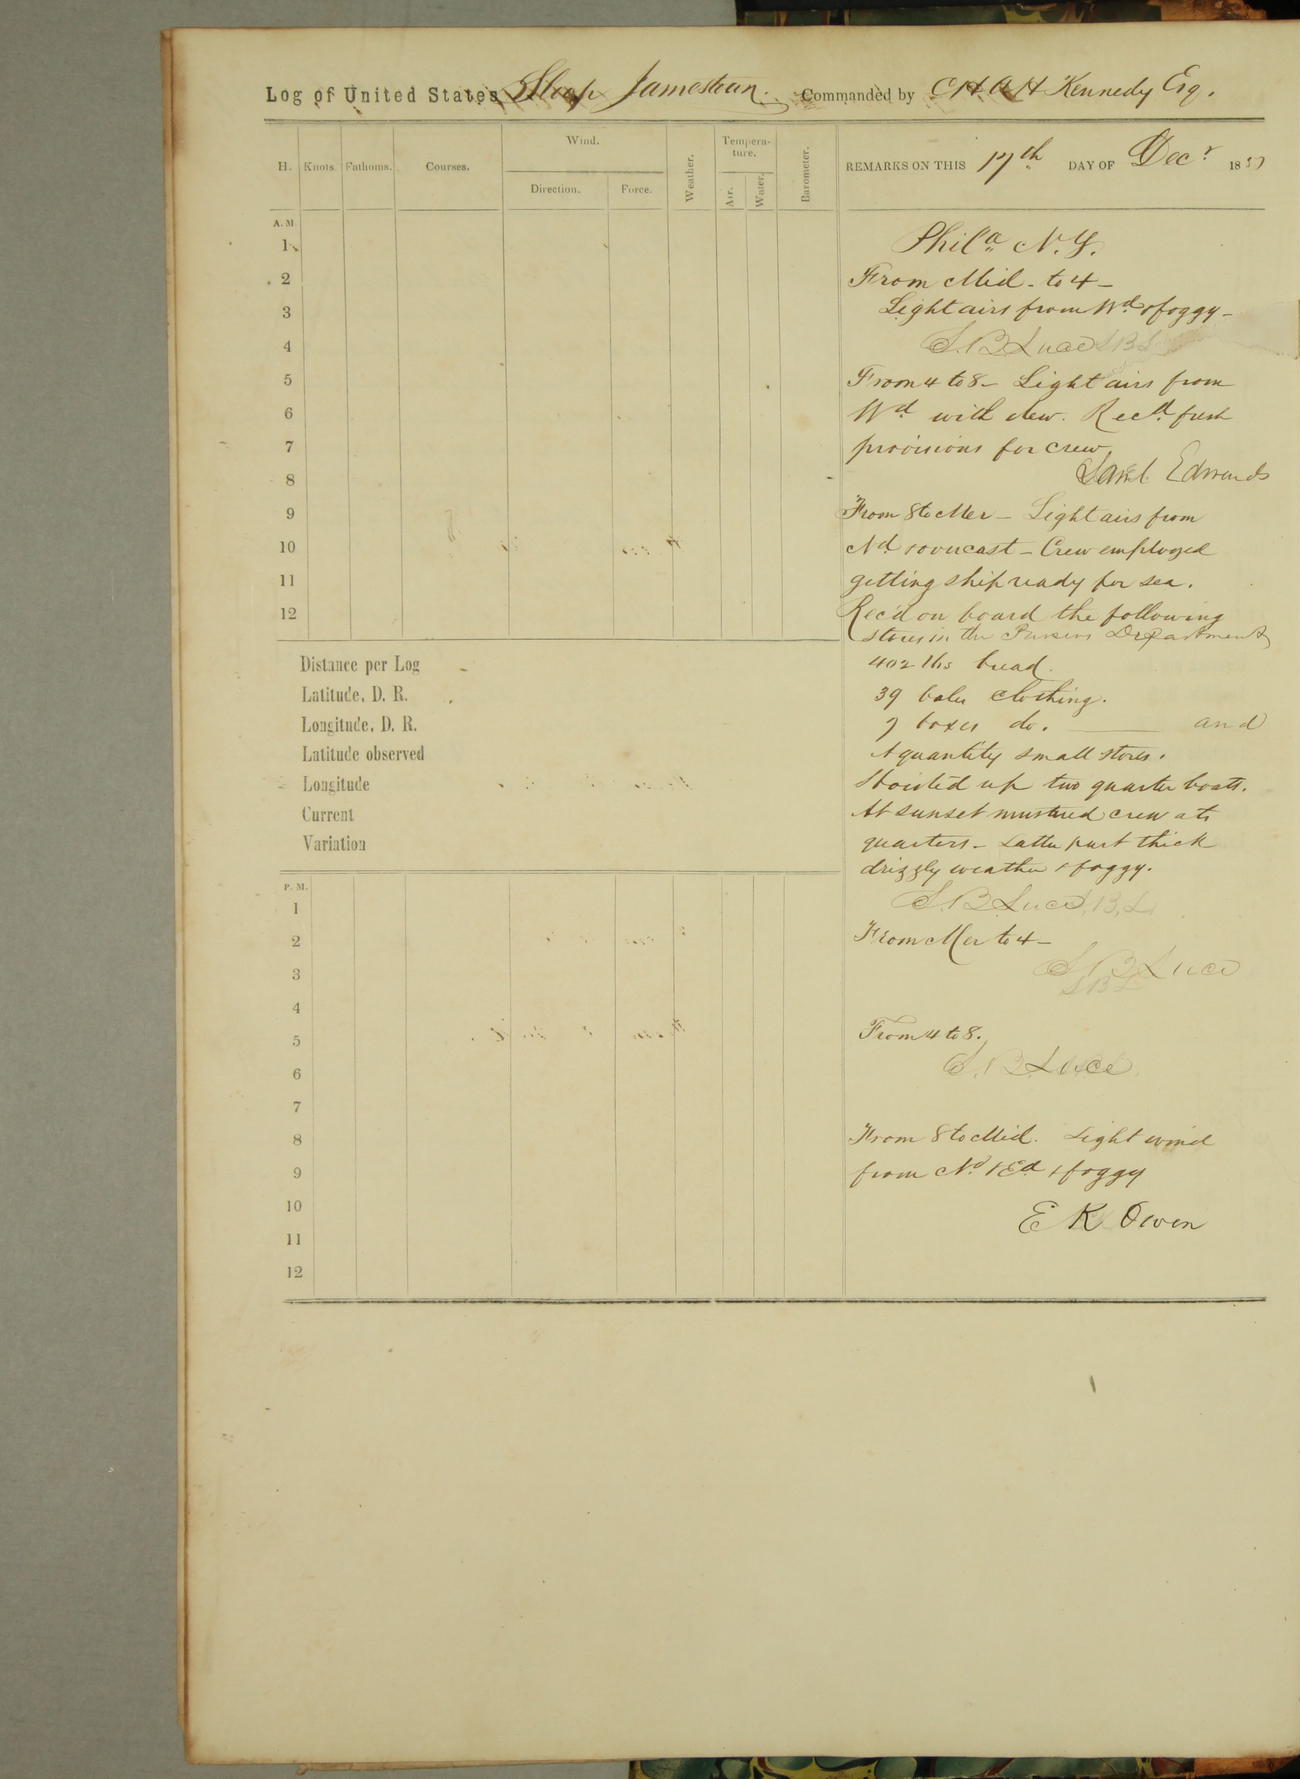 Log of United States Sloop Jamestown. Commanded by C H A H Kennedy Esq.
H. Knots. Fathoms. Courses. Wind. Direction. Force. Weather. Tempera-ture. Air. Water. Barometer. REMARKS ON THIS 17th DAY OF Decr 1857
A. M.
Phila N. Y.
1
2
From Mid - to 4 -
3
Light airs from Wd & foggy -
4
S. B. Luce S B L
5
From 4 to 8 - Light airs from
6
Wd with dew. Recd fresh
7
provisions for crew
8
Saml Edwards
9
From 8 to Mer - Light airs from
10
Nd & overcast - Crew employed
11
getting ship ready for sea.
12
Rec'd on board the following
stores in the Pursers Department
402 lbs bread.
39 bales clothing.
7 boxes do. and
A quantity small stores.
Hoisted up two quarter boats.
At sunset mustered crew at
quarters - Latter part thick
drizzly weather & foggy.
Distance per Log
Latitude, D. R.
Longitude, D. R.
Latitude observed
Longitude
Current
Variation
P. M.
1
S. B. Luce S. B. L
2
From Mer to 4 -
3
S. B. Luce
S B L
4
5
From 4 to 8.
6
S. B. Luce
7
8
From 8 to Mid. Light wind
9
from Nd & Ed & foggy
10
E K Owen
11
12